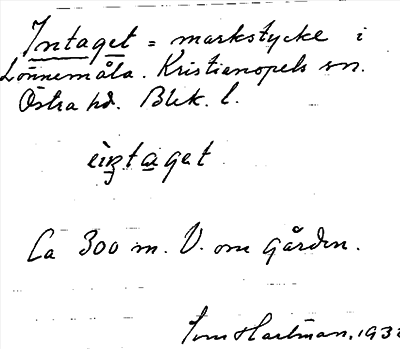 Intaget = markstycke i
Lönnemåla. Kristianopels sn.
Östra hd. Blek. l.
ìntaget
Ca 300 m. V. om gården.
Hartman, 193